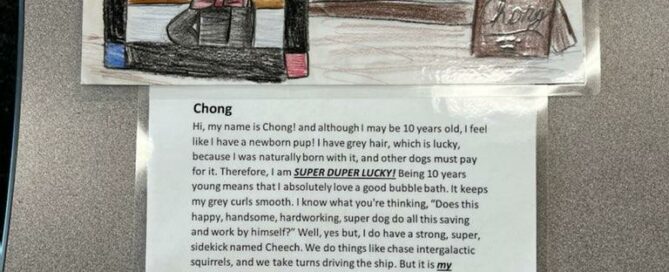 Chong
Chong
Hi, my name is Chong! and although I may be 10 years old, I feel
like I have a newborn pup! I have grey hair, which is lucky,
because I was naturally born with it, and other dogs must pay
for it. Therefore, I am SUPER DUPER LUCKY! Being 10 years
young means that I absolutely love a good bubble bath. It keeps
my grey curls smooth. I know what you're thinking, "Does this
happy, handsome, hardworking, super dog do all this saving
and work by himself?" Well, yes but, I do have a strong, super,
sidekick named Cheech. We do things like chase intergalactic
squirrels, and we take turns driving the ship. But it is my